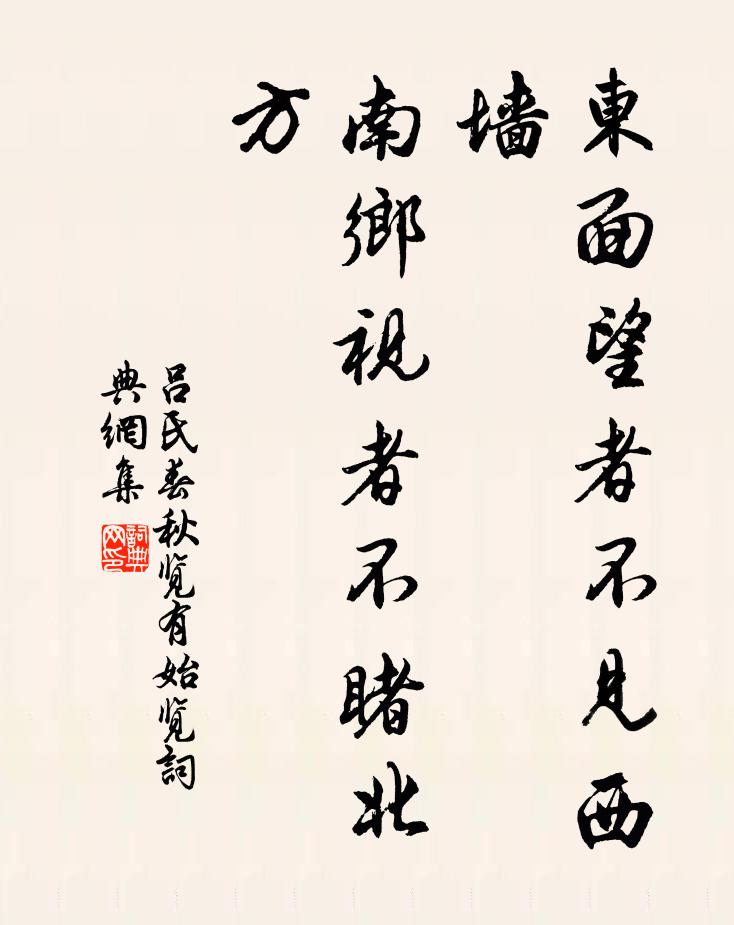 東面望者不見西
墻
南鄉視者不睹北
方
吕氏春秋览有始览詞
典網集
詞典
网印